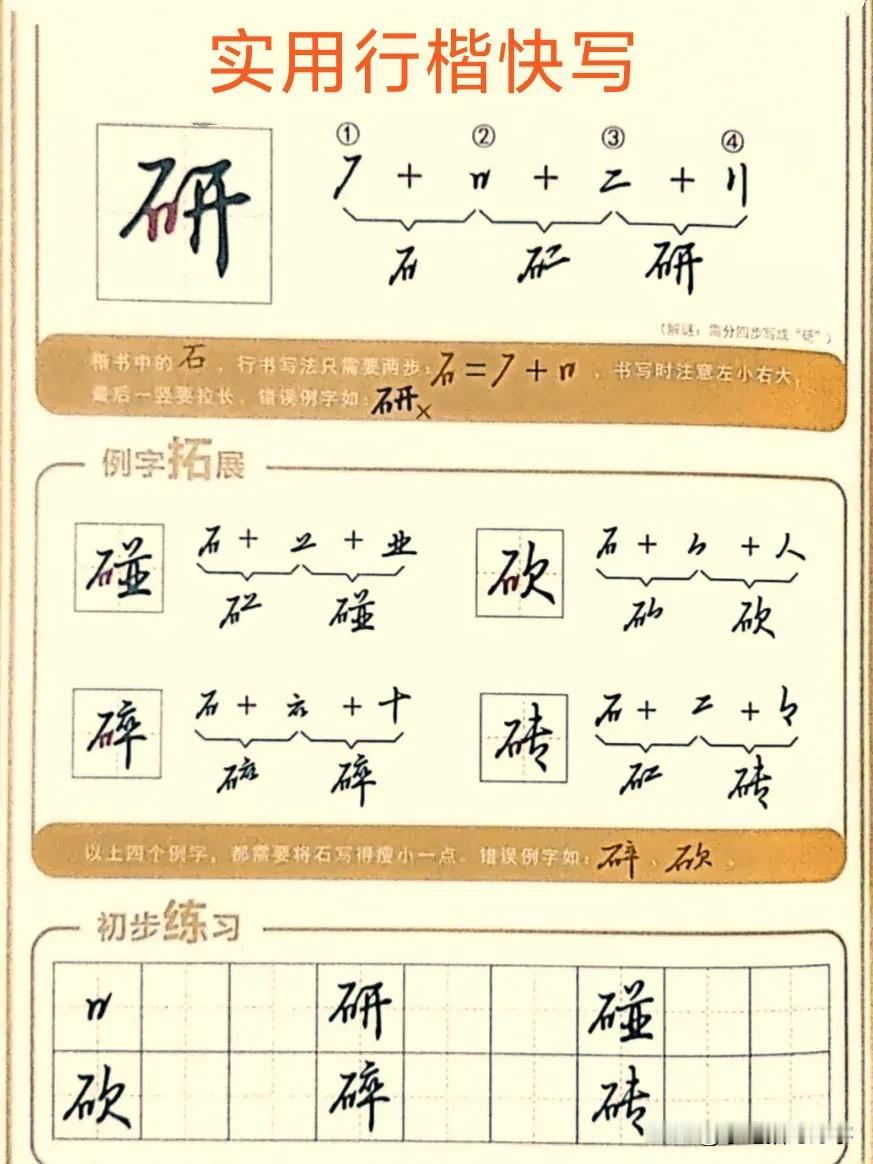 实用行楷快写
① ② ③ ④
研 + + +
石 研
(解谜:需分四步写成"研")
楷书中的石,行书写法只需要两步:石= + ,书写时注意左小右大,
最后一竖要拉长。错误例字如:研×
例字拓展
碰 石 + + 业 砍 石 + + 人
碰 砍
碎 石 + + 十 砖 石 + +
碎 砖
以上四个例字,都需要将石写得瘦小一点。错误例字如:碎、砍。
初步练习
研 碰
砍 碎 砖